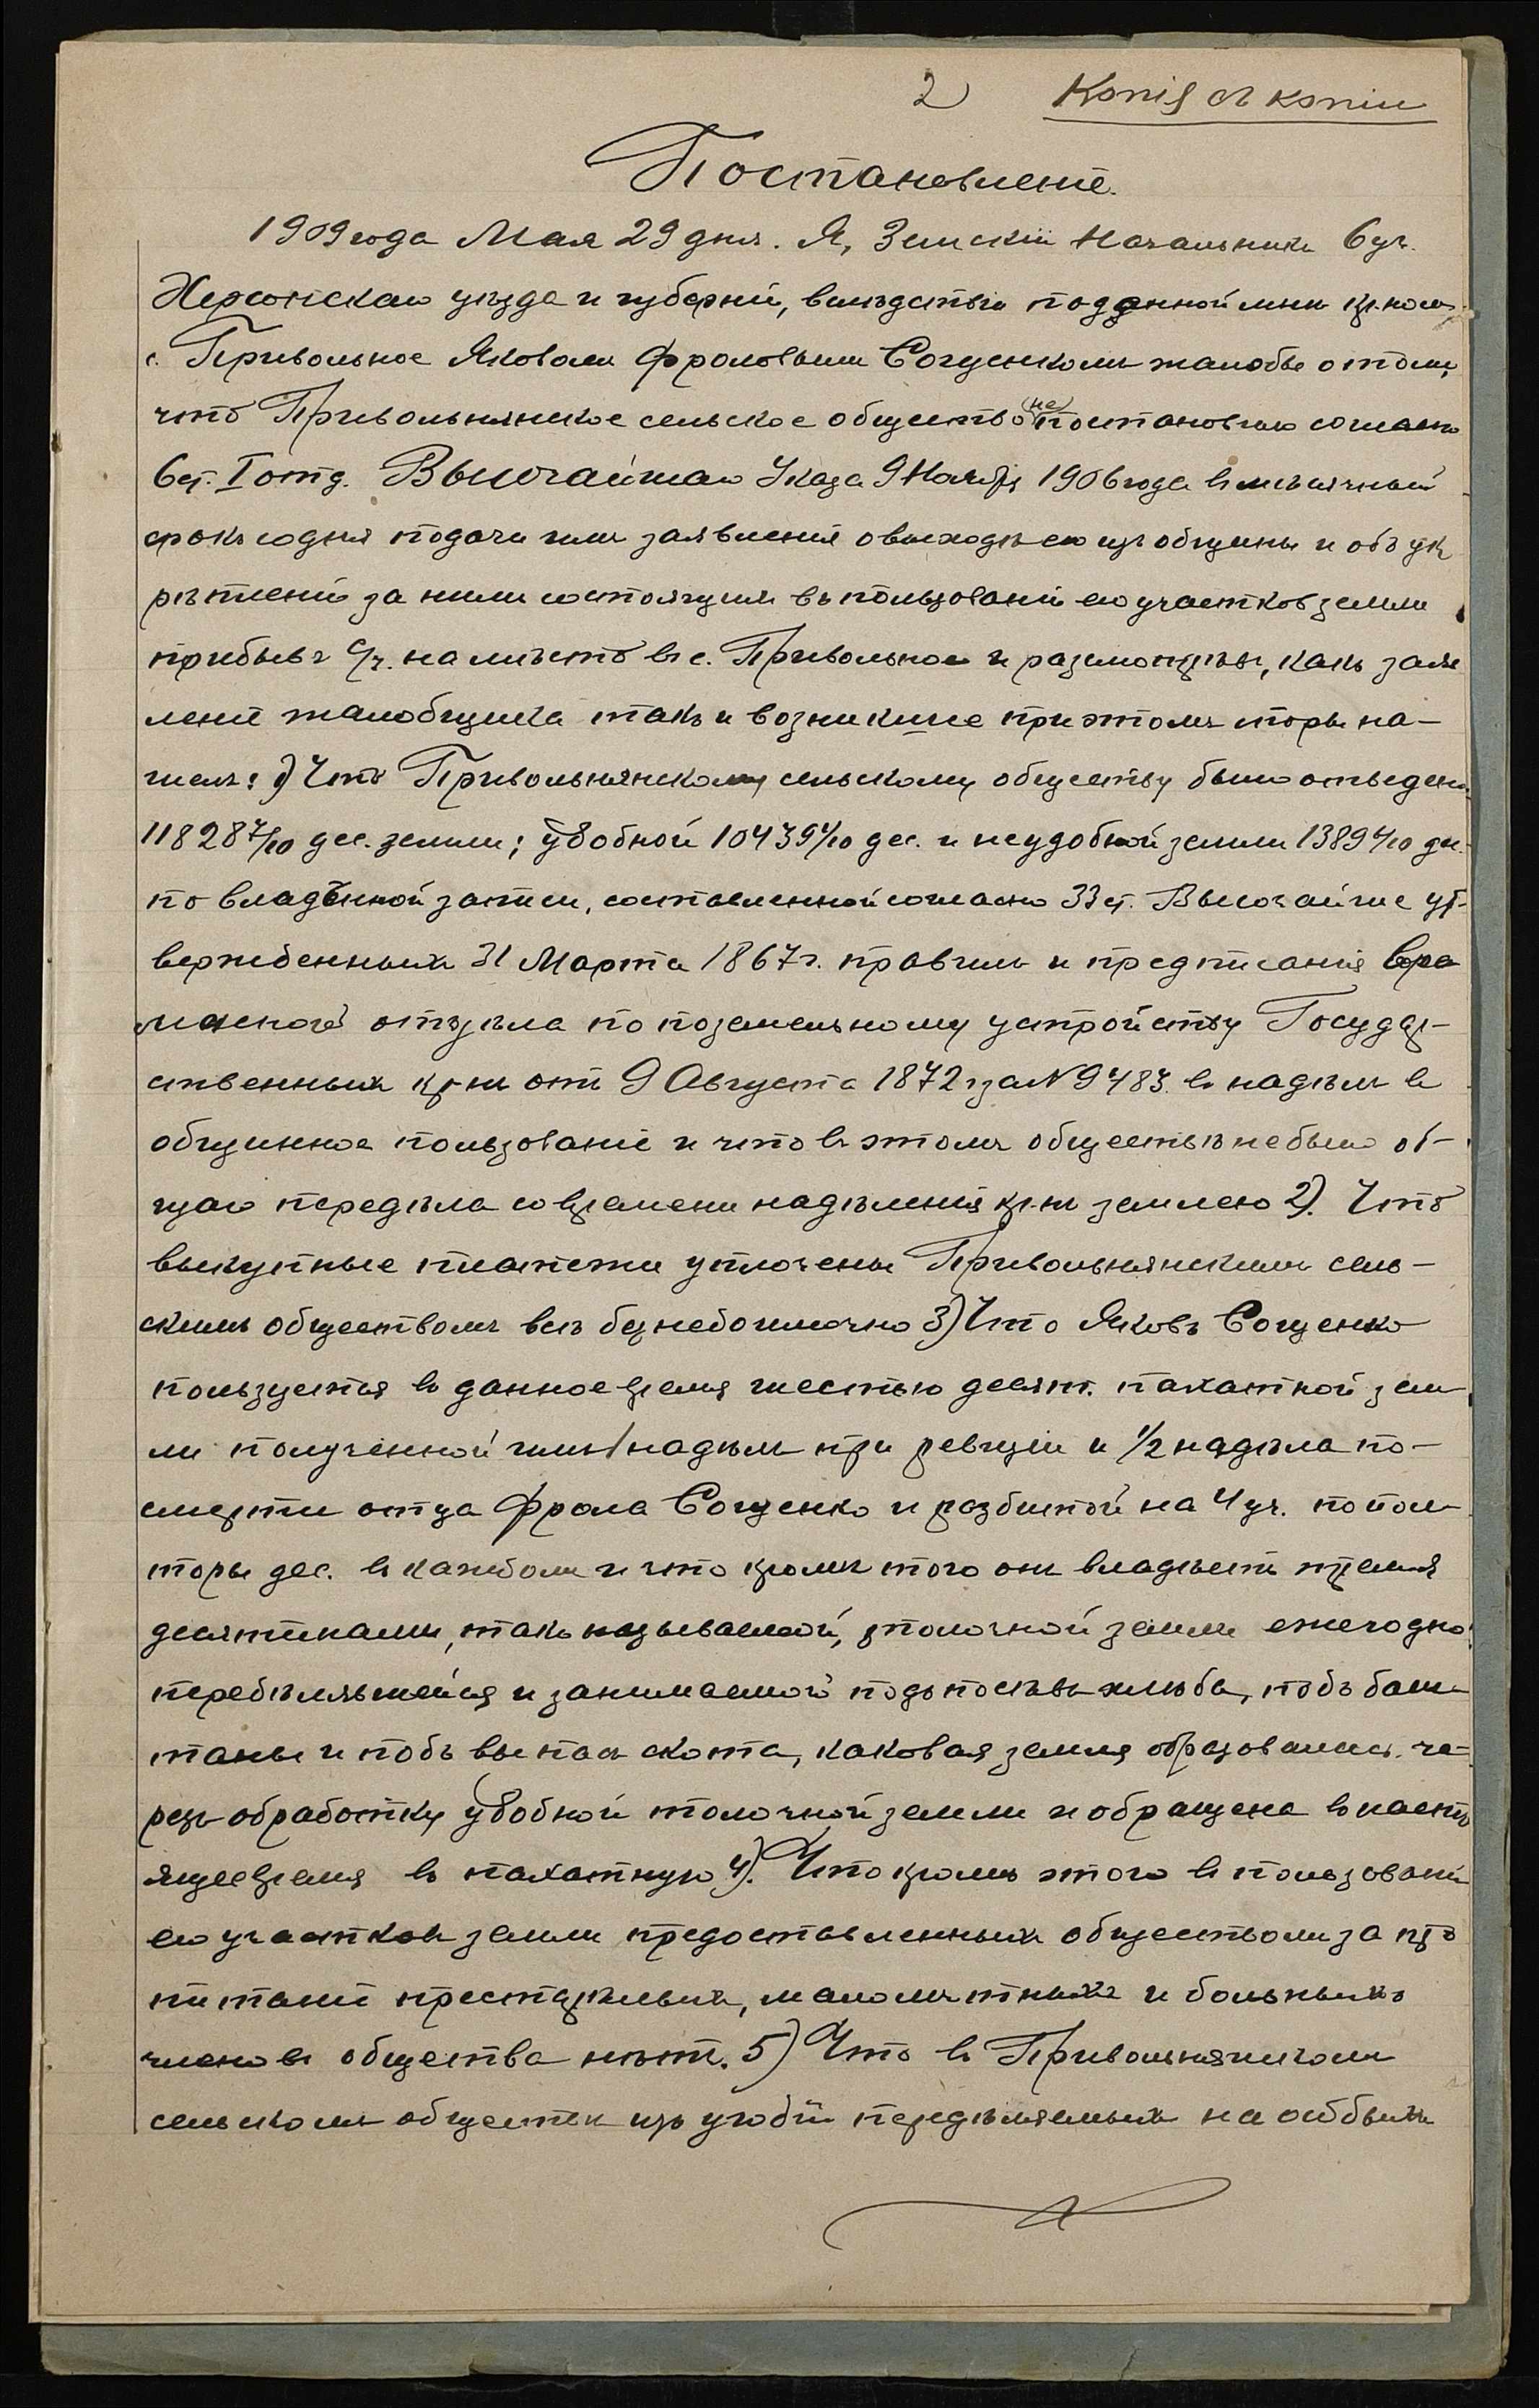 2 Копія съ копіи
Постановленіе.
1909 года Мая 29 дня. Я, Земскій Начальникъ 6 уч.
Херсонскаго уѣзда и губерніи, вслѣдствіе поданной мнѣ кр-номъ
с. Привольное Яковомъ Фроловымъ Согценкомъ жалобы о томъ,
что Привольнянское сельское общество (не) постановило согласно
6 ст. I отд. Высочайшаго Указа 9 Ноября 1906 года въ мѣсячный
срокъ со дня подачи имъ заявленія о выходѣ его изъ общины и объ ук
рѣпленіи за нимъ состоящихъ въ пользованіи его участковъ земли
прибывъ с/ч. на мѣсто въ с. Привольное и разсмотрѣвъ, какъ заяв
леніе жалобщика такъ и возникшіе при этомъ споры на-
шелъ: 1) Что Привольнянскому сельскому обществу было отведено
11828 7/10 дес. земли; удобной 10439 1/10 дес. и неудобной земли 1389 4/10 дес.
по владѣнной записи, составленной согласно 33 ст. Высочайше ут-
вержденныхъ 31 Марта 1867 г. правилъ и предписанія
отдѣла по поземельному устройству Государ-
ственныхъ кр-нъ отъ 9 Августа 1872 г за № 9483. въ надѣлъ въ
общинное пользованіе и что въ этомъ обществѣ не было об-
щаго передѣла со времени надѣленія кр-нъ землею 2). Что
выкупные платежи уплочены Привольнянскимъ сель-
скимъ обществомъ всѣ безнедоимочно 3) Что Яковъ Согценко
пользуется въ данное время шестью десят. пахатной зем
ли полученной имъ 1 надѣлъ при ревизіи и 1/2 надѣла по-
смерти отца Фрола Согценко и разбитой на 4 уч. по пол
торы дес. въ каждомъ и что кромѣ того онъ владѣетъ тремя
десятинами, такъ называемой, толочной земли ежегодно
передѣлявшейся и занимаемой подъ посѣвъ хлѣба, подъ баш
таны и подъ выпасъ скота, каковая земля образовалась че-
резъ обработку удобной толочной земли и обращена въ насто
ящее время въ пахатную 4). Что кромѣ этого въ пользованіи
его участковъ земли предоставленныхъ обществомъ за про
питаніе престарѣлыхъ, малолѣтнихъ и больныхъ
членовъ общества нѣтъ. 5) Что въ Привольнянскомъ
сельскомъ обществѣ изъ угодій передѣляемыхъ на особыхъ